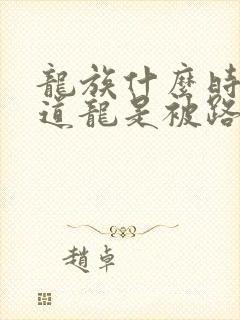 龍族什麼時
道龍是被路
趙卓